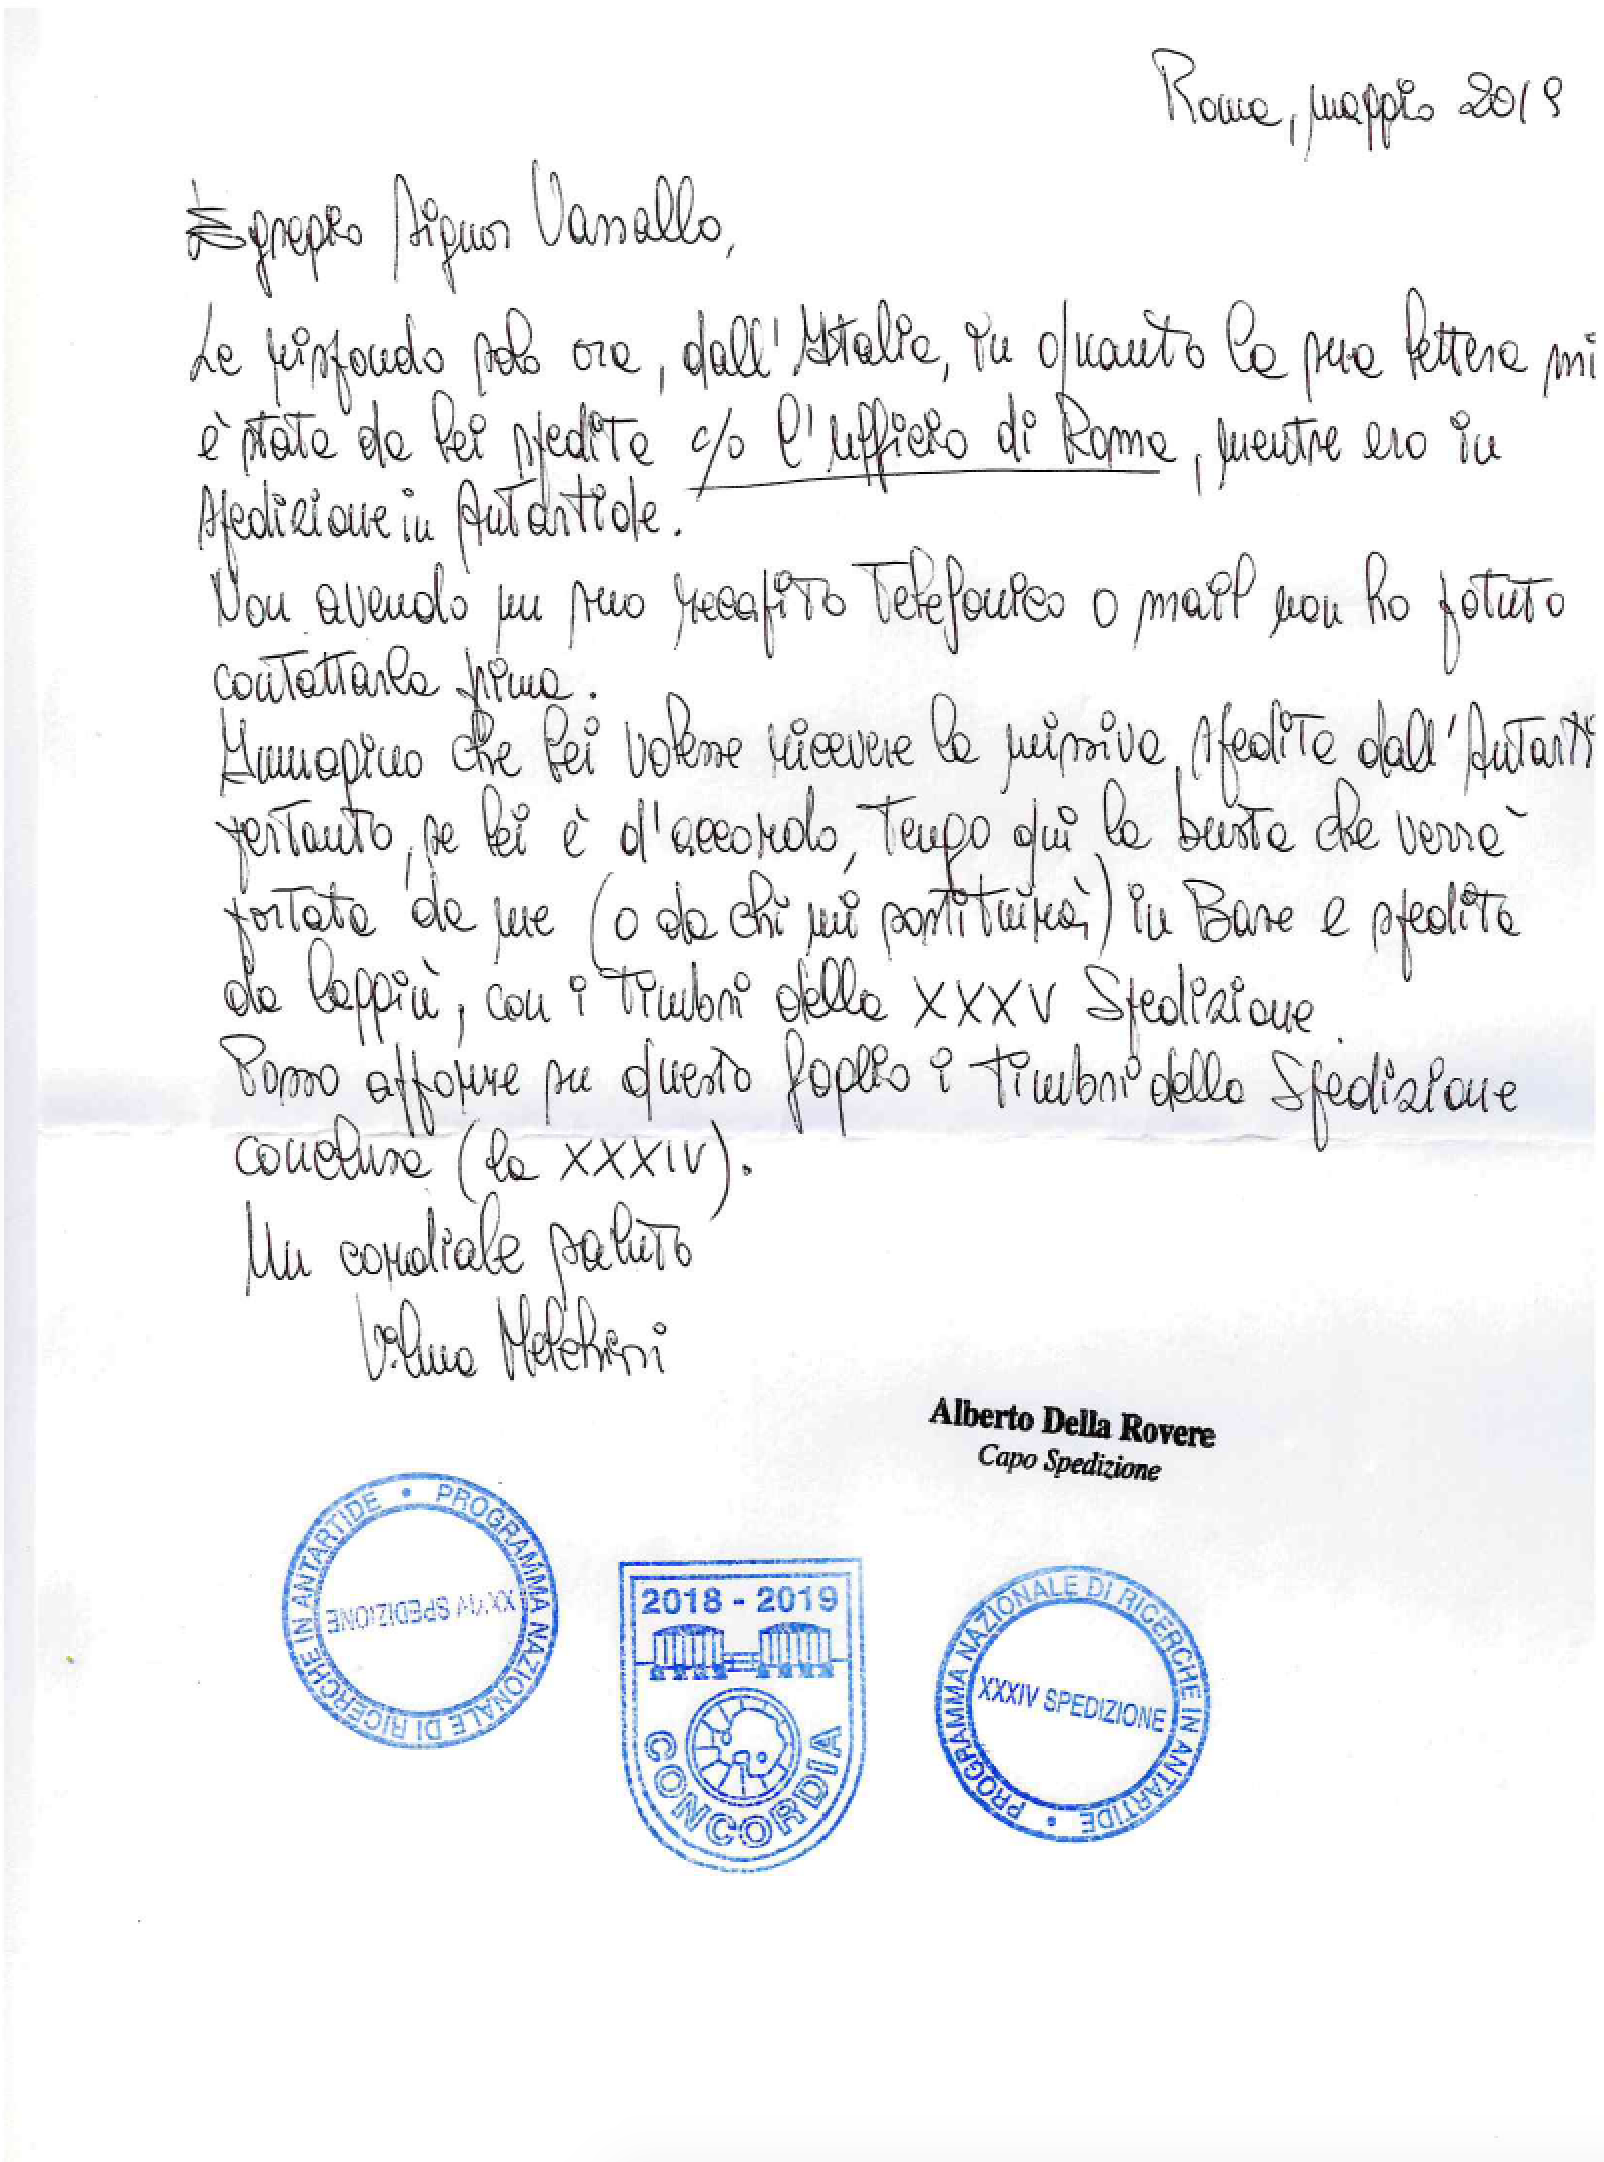 Roma, maggio 2019
Egregio Signor Vassallo,
Le rispondo solo ora, dall'Italia, in quanto la sua lettera mi
è stata da lei spedita c/o l'ufficio di Roma, mentre ero in
spedizione in Antartide.
Non avendo un suo recapito telefonico o mail non ho potuto
contattarla prima.
Immagino che lei volesse ricevere la missiva spedita dall'Antarti
pertanto, se lei è d'accordo, tengo qui la busta che verrà
portata da me (o da chi mi sostituirà) in Base e spedita
da laggiù, con i timbri della XXXV Spedizione.
Posso apporre su questo foglio i timbri della Spedizione
conclusa (la XXXIV).
Un cordiale saluto
Vilma Melchiori
Alberto Della Rovere
Capo Spedizione
PROGRAMMA NAZIONALE DI RICERCHE IN ANTARTIDE •
XXXIV SPEDIZIONE
2018 - 2019
CONCORDIA
PROGRAMMA NAZIONALE DI RICERCHE IN ANTARTIDE •
XXXIV SPEDIZIONE